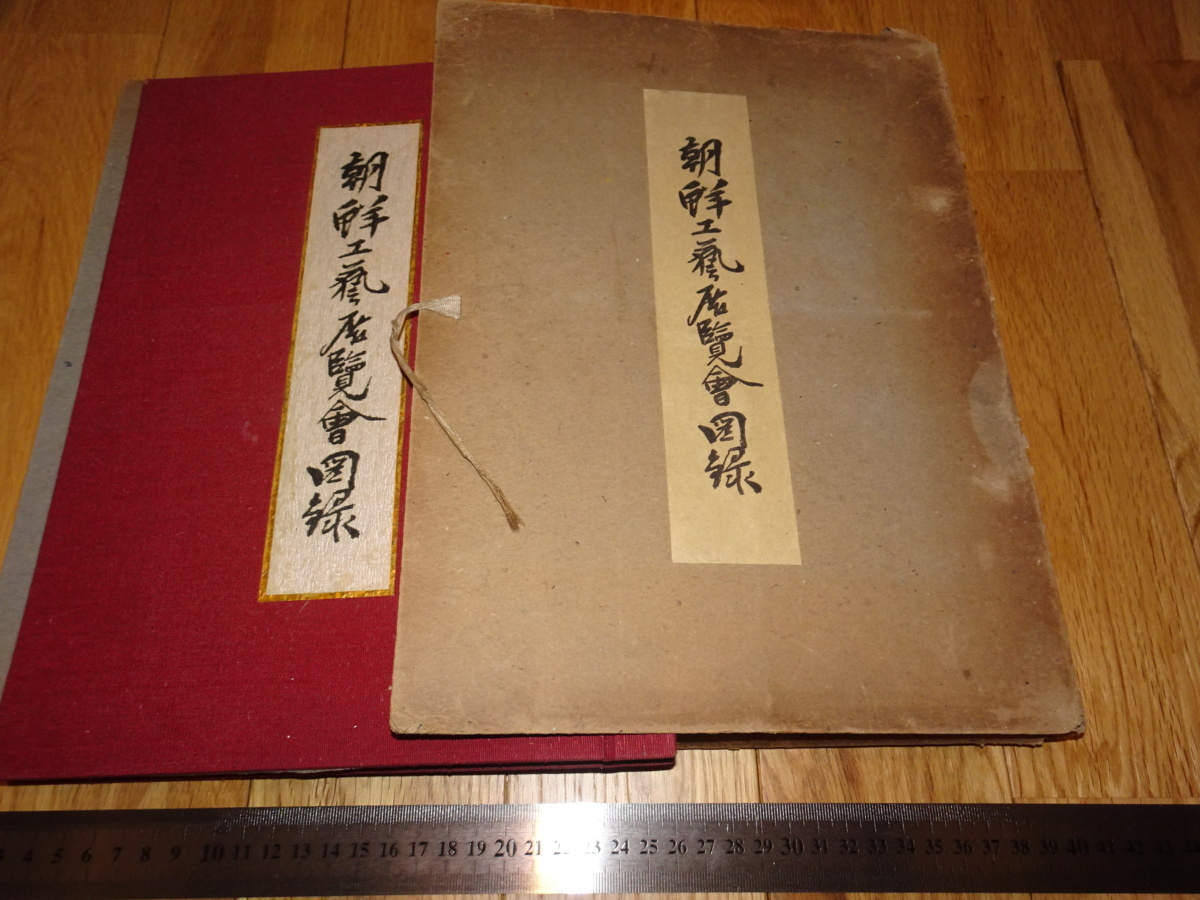 朝鮮工藝展覽會図録
朝鮮工藝展覽會図録
3 4 5 6 7 8 9 10 11 12 13 14 15 16 17 18 19 20 21 22 23 24 25 26 27 28 29 30 31 32 33 34 35 36 37 38 39 40 41 42 43